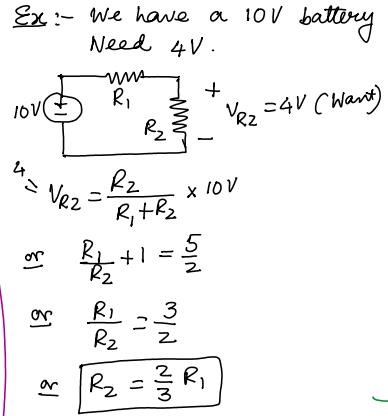 Ex :- We have a 10V battery
Need 4V.
10V R₁ R₂ + V_R2 = 4V (Want) -
4 = V_R2 = R₂ / (R₁ + R₂) x 10V
or R₁/R₂ + 1 = 5/2
or R₁/R₂ = 3/2
or R₂ = 2/3 R₁